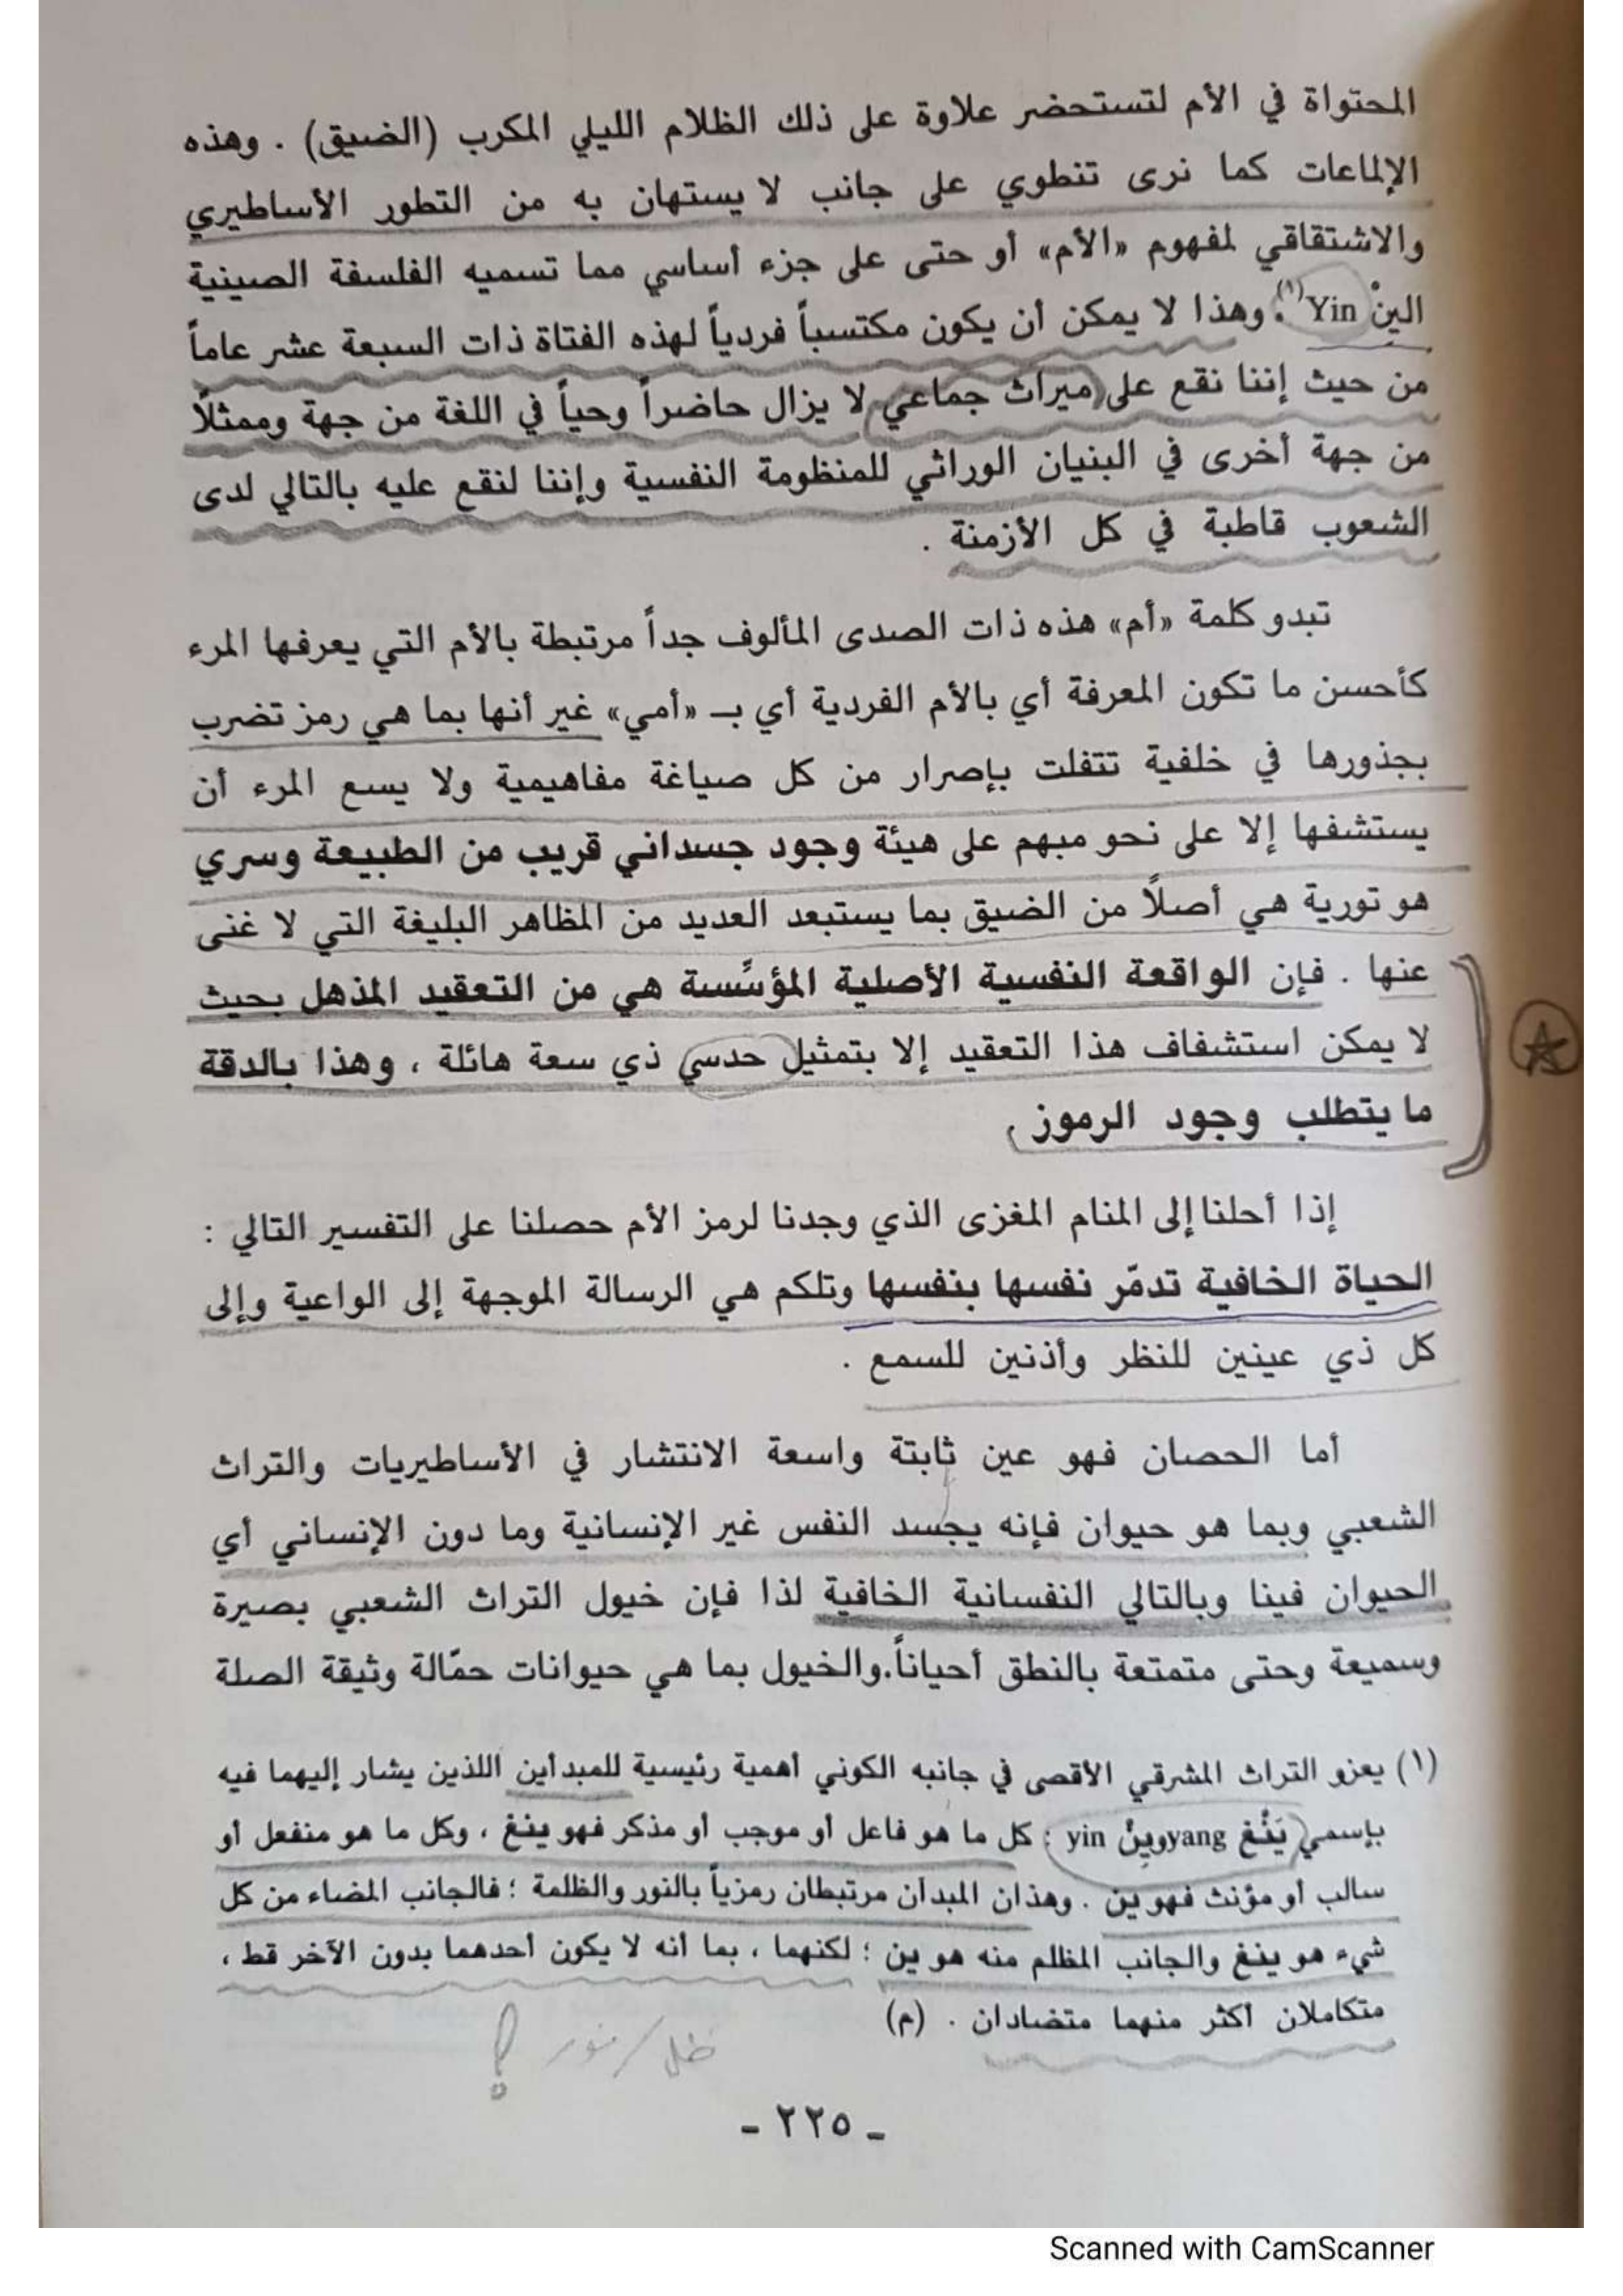 المحتواة في الأم لتستحضر علاوة على ذلك الظلام الليلي المكرب (الضيق) . وهذه
الإلماعات كما نرى تنطوي على جانب لا يستهان به من التطور الأساطيري
والاشتقاقي لمفهوم «الأم» أو حتى على جزء أساسي مما تسميه الفلسفة الصينية
الينْ Yin(١). وهذا لا يمكن أن يكون مكتسباً فردياً لهذه الفتاة ذات السبعة عشر عاماً
من حيث إننا نقع على ميراث جماعي لا يزال حاضراً وحياً في اللغة من جهة وممثلًا
من جهة أخرى في البنيان الوراثي للمنظومة النفسية وإننا لنقع عليه بالتالي لدى
الشعوب قاطبة في كل الأزمنة .
تبدو كلمة «أم» هذه ذات الصدى المألوف جداً مرتبطة بالأم التي يعرفها المرء
كأحسن ما تكون المعرفة أي بالأم الفردية أي بـ «أمي» غير أنها بما هي رمز تضرب
بجذورها في خلفية تتفلت بإصرار من كل صياغة مفاهيمية ولا يسع المرء أن
يستشفها إلا على نحو مبهم على هيئة وجود جسداني قريب من الطبيعة وسري
هو تورية هي أصلًا من الضيق بما يستبعد العديد من المظاهر البليغة التي لا غنى
عنها . فإن الواقعة النفسية الأصلية المؤسِّسة هي من التعقيد المذهل بحيث
لا يمكن استشفاف هذا التعقيد إلا بتمثيل حدسي ذي سعة هائلة ، وهذا بالدقة
ما يتطلب وجود الرموز .
إذا أحلنا إلى المنام المغزى الذي وجدنا لرمز الأم حصلنا على التفسير التالي :
الحياة الخافية تدمّر نفسها بنفسها وتلكم هي الرسالة الموجهة إلى الواعية وإلى
كل ذي عينين للنظر وأذنين للسمع .
أما الحصان فهو عين ثابتة واسعة الانتشار في الأساطيريات والتراث
الشعبي وبما هو حيوان فإنه يجسد النفس غير الإنسانية وما دون الإنساني أي
الحيوان فينا وبالتالي النفسانية الخافية لذا فإن خيول التراث الشعبي بصيرة
وسميعة وحتى متمتعة بالنطق أحياناً.والخيول بما هي حيوانات حمّالة وثيقة الصلة
(١) يعزو التراث المشرقي الأقصى في جانبه الكوني أهمية رئيسية للمبدأين اللذين يشار إليهما فيه
بإسمي يَنْغ yang وينْ yin : كل ما هو فاعل أو موجب أو مذكر فهو ينغ ، وكل ما هو منفعل أو
سالب أو مؤنث فهو ين . وهذان المبدآن مرتبطان رمزياً بالنور والظلمة ؛ فالجانب المضاء من كل
شيء هو ينغ والجانب المظلم منه هو ين ؛ لكنهما ، بما أنه لا يكون أحدهما بدون الآخر قط ،
متكاملان أكثر منهما متضادان . (م)
ظل/نور ؟
- ٢٢٥ -
Scanned with CamScanner